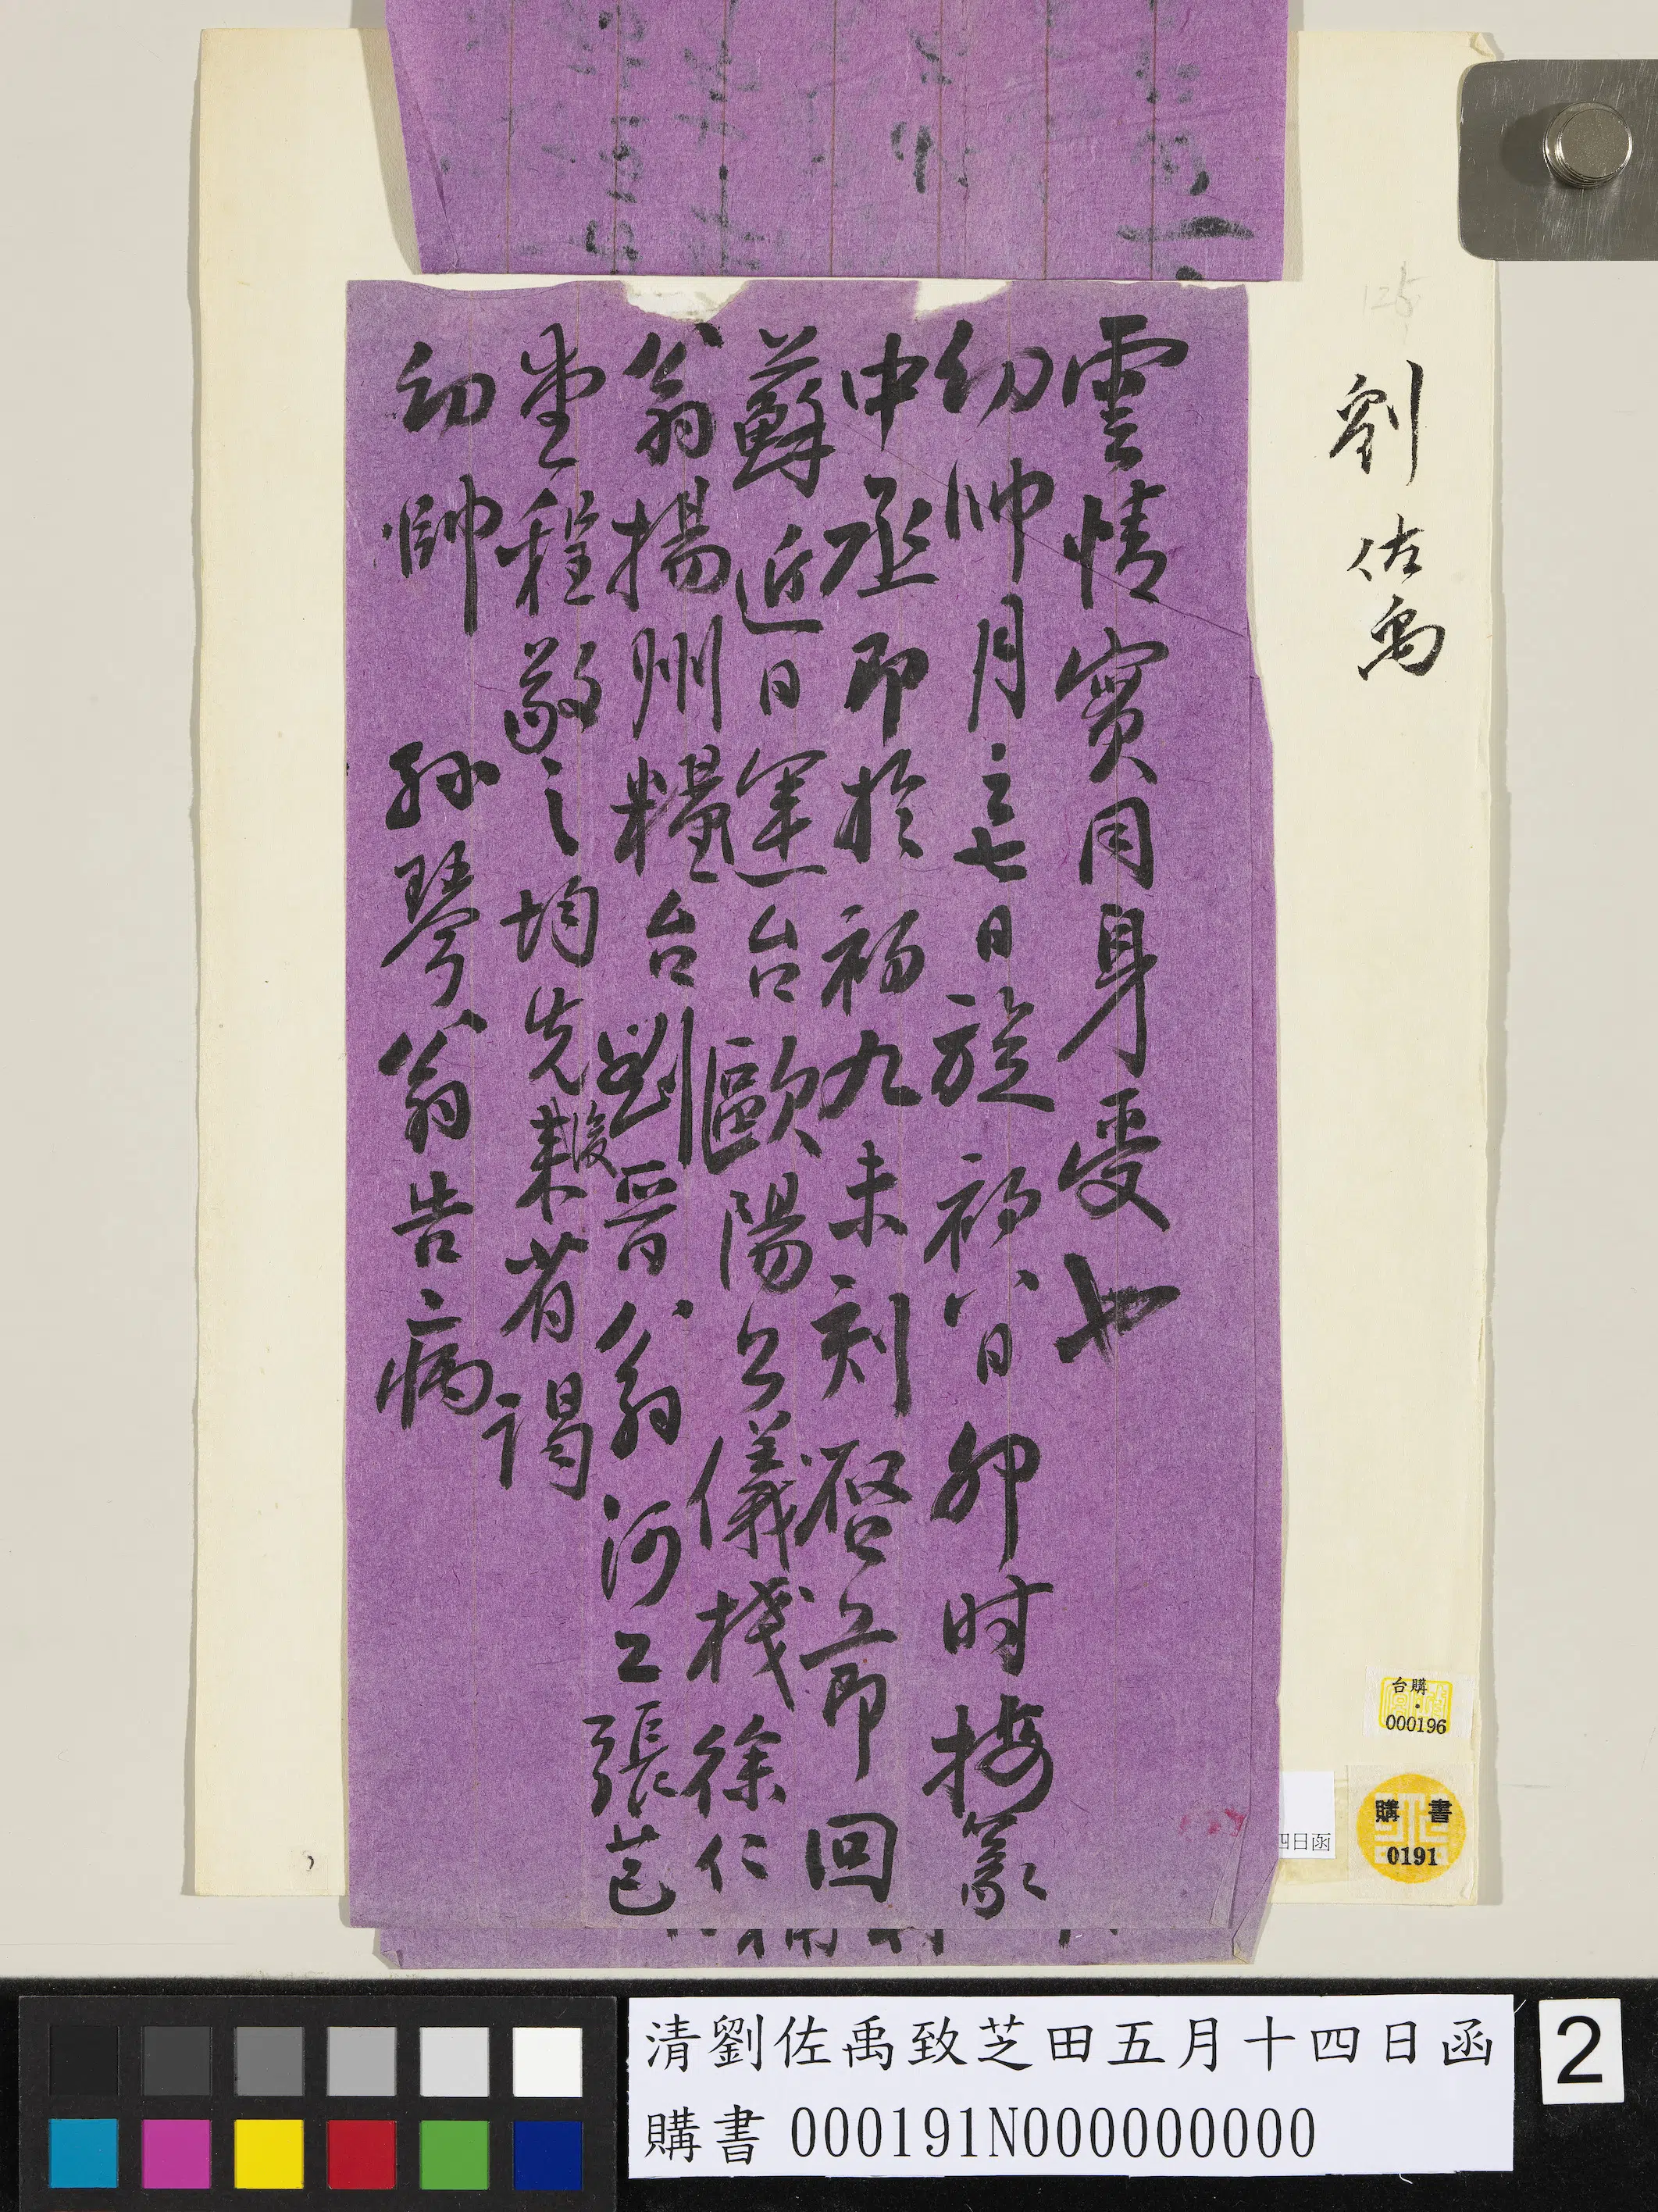 125
劉佐禹
雲情實同身受也
幼帥月之七日旋初八日卯時接篆
中丞即於初九未刻啓節回
蘇近日運台歐陽公儀棧徐仁
翁揚州糧台劉晉翁河工張芑
堂程敬之均先後來省謁
幼帥孫琴翁告病
台購
000196
購書
0191
四日函
清劉佐禹致芝田五月十四日函
購書 000191N000000000
2